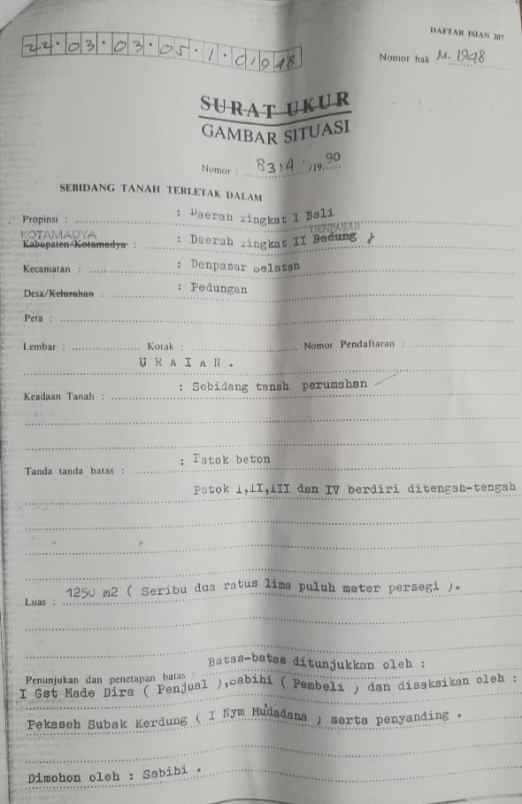 DAFTAR ISIAN 207
22.03.03.05.1.01948
Nomor hak M. 1948
SURAT UKUR
GAMBAR SITUASI
Nomor : 8314 /19 90
SEBIDANG TANAH TERLETAK DALAM
Propinsi : : Daerah Tingkat I Bali
KOTAMADYA DENPASAR
Kabupaten/Kotamadya : : Daerah Tingkat II Badung
Kecamatan : : Denpasar Selatan
Desa/Kelurahan : Pedungan
Peta :
Lembar : Kotak : Nomor Pendaftaran :
U R A I A N .
Keadaan Tanah : : Sebidang tanah perumahan
Tanda tanda batas : : Patok beton
Patok I,II,III dan IV berdiri ditengah-tengah
Luas : 1250 m2 ( Seribu dua ratus lima puluh meter persegi ).
Penunjukan dan penetapan batas : Batas-batas ditunjukkan oleh :
I Gst Made Dira ( Penjual ),Sabihi ( Pembeli ) dan disaksikan oleh :
Pekaseh Subak Kerdung ( I Nym Mudadana ) serta penyanding .
Dimohon oleh : Sabihi .